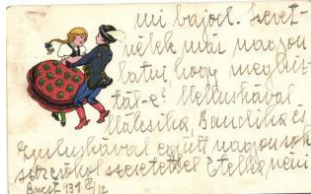 mi bajod. Szeret-
nélek már nagyon
látni, hogy meghíz-
tál-e? Mellushával
Málcsika, Bandika és
Gyulushával együtt nagyon sok
szor csókol szeretettel Etelka néni
Buest 131 VI/12